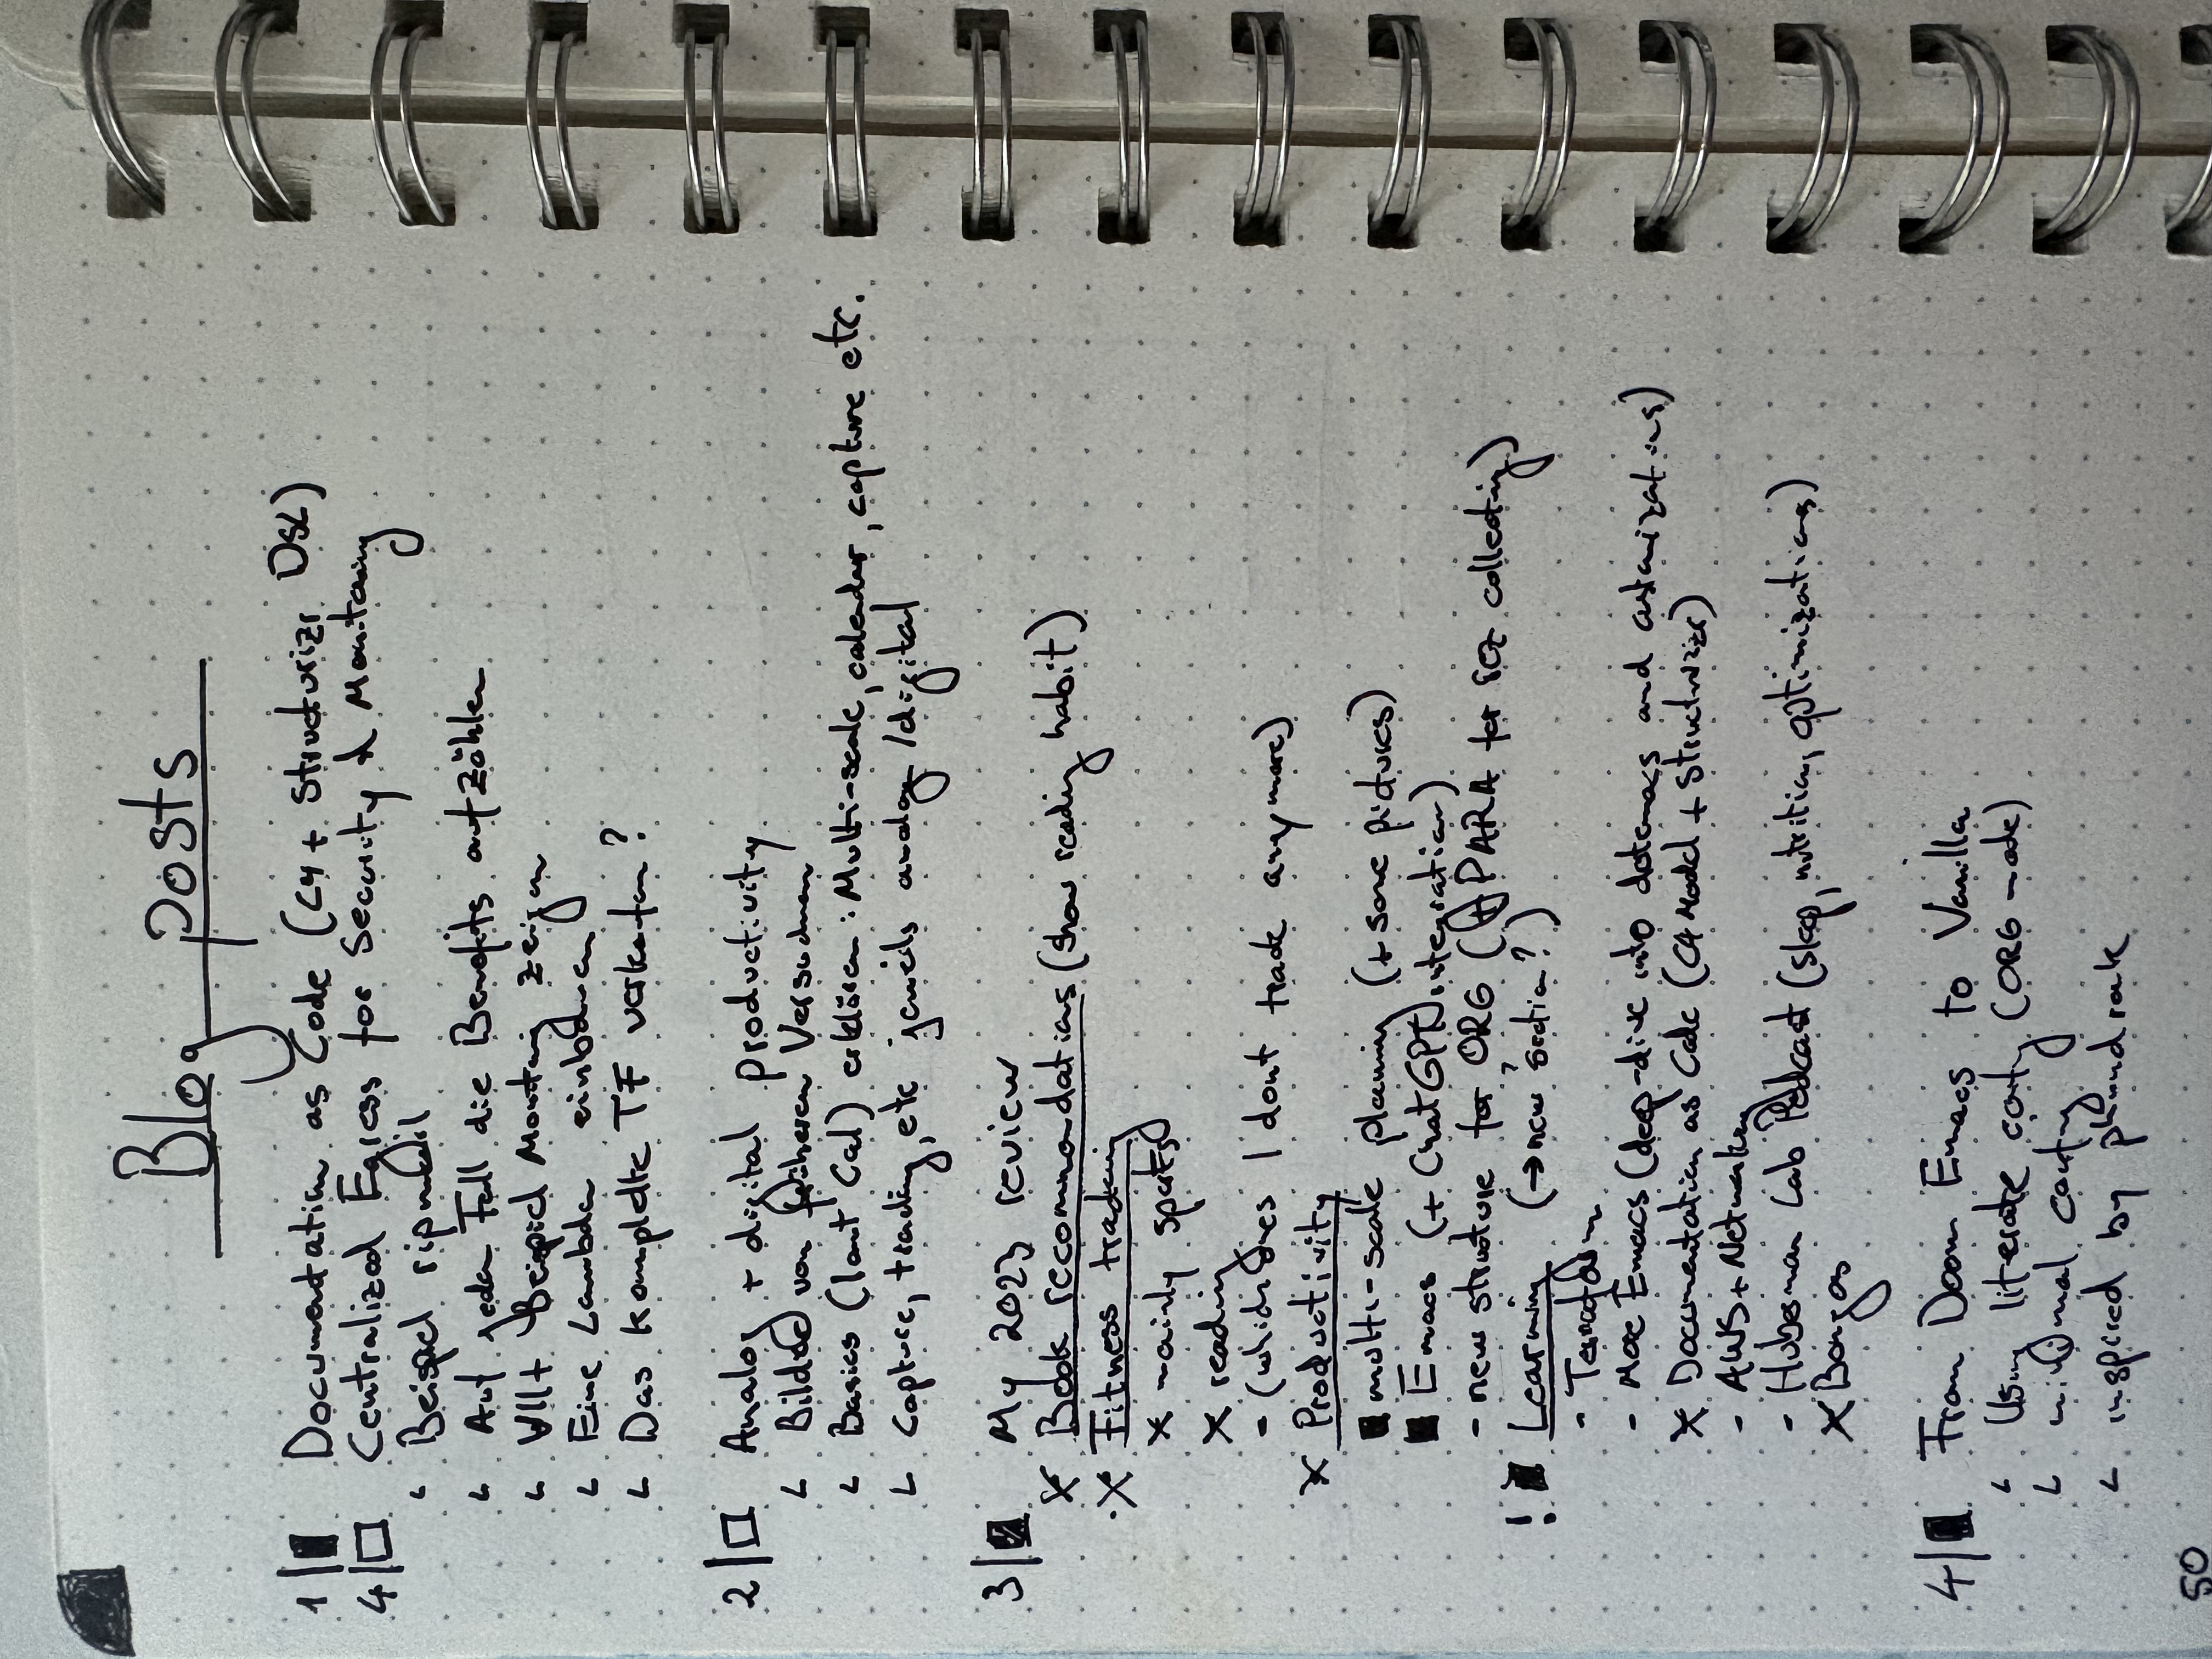 Blog posts
1 Documentation as Code (C4 + Structurizr DSL)
4 Centralized Egress for Security & Monitoring
Beispiel
Auf jeden Fall die Benefits aufzählen
Vllt Beispiel Monitoring zeigen
Eine Lambda einbauen
Das komplette TF verketten?
2 Analog + digital productivity
Bilder von früheren Versuchen
Basics (Cal) erklären: Multi-scale, calendar, capture etc.
Capture, tracking, etc jeweils analog / digital
3 May 2023 review
x Book reccomendations (show reading habit)
x Fitness tracking
x mainly sports
x reading
- (which I dont track anymore)
x Productivity
multi-scale planning (+ some pictures)
Emacs (+ ChatGPT integration)
- new structure for ORG (# PARA for collecting)
! Learning (→ new section?)
-
- More Emacs (deep-dive into dotemacs and customizations)
x Documentation as Code (C4 Model + Structurizr)
- AWS + Networking
- Huberman Lab Podcast (sleep, nutrition, optimizations)
x Bongas
4 From Doom Emacs to Vanilla
Using literate config (ORG-mode)
minimal config
inspired by
50